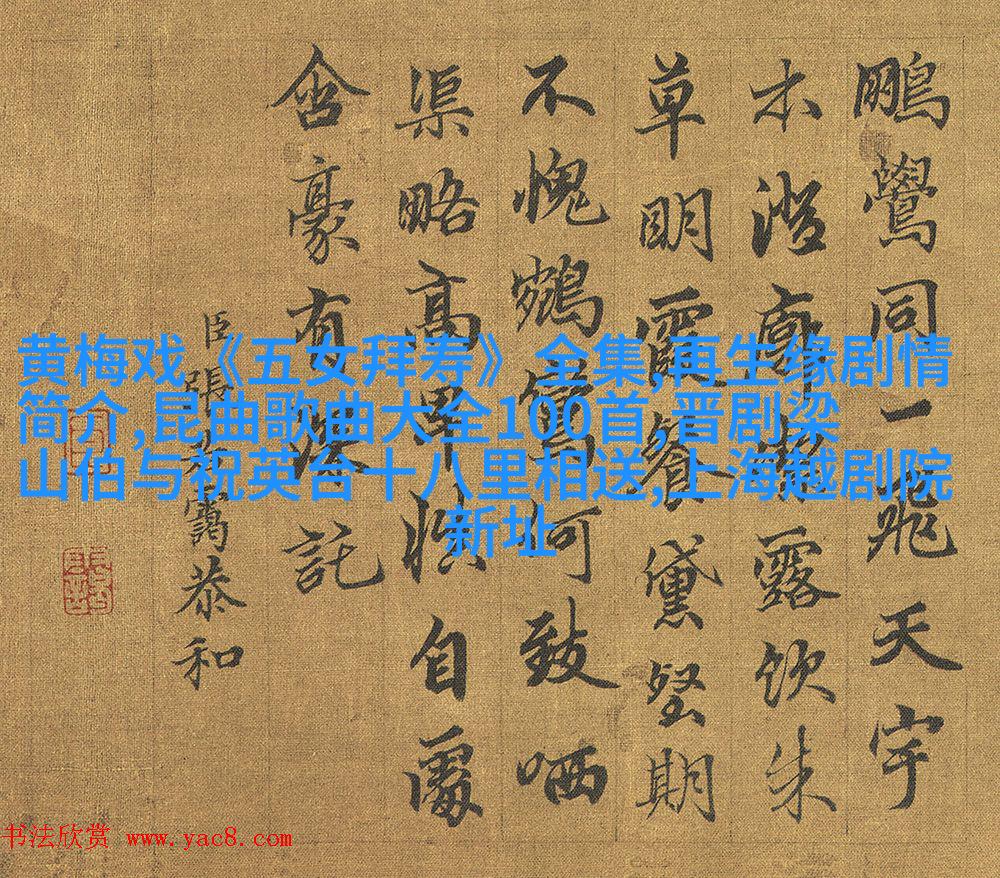 鵬鷽同一飛天宇
木澄露飲朱
草明霞餐黛堅期
不愧致哂
渠略高自屬
含豪有深託
臣張若靄恭和
黄梅戏《五女拜寿》全集,再生缘剧情
简介,昆曲歌曲大全100首,晋剧梁
山伯与祝英台十八里相送,上海越剧院
新址
书法欣赏 www.yac8.com